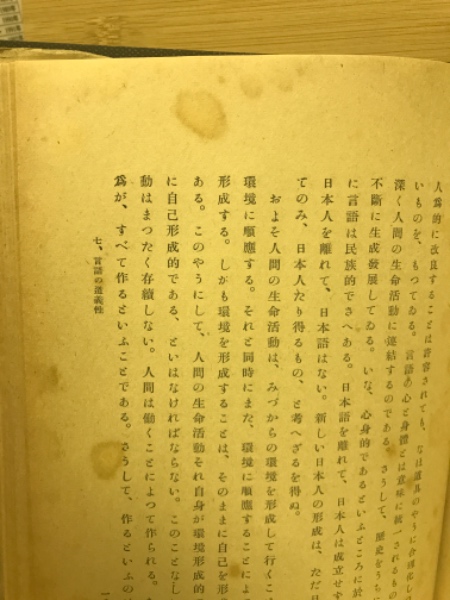 人爲的に改良することは許容されても、なほ道具のやうに合理化し
いものを、もつてゐる。言語の心と身體とは意味に統一されるもの
深く人間の生命活動に連結するのである。さうして、歴史をうち
不斷に生成發展してゐる。いな、心身的であるといふところに於
に言語は民族的でさへある。日本語を離れて、日本人は成立せず
日本人を離れて、日本語はない。新しい日本人の形成は、ただ
てのみ、日本人たり得るもの、と考へざるを得ぬ。
およそ人間の生命活動は、みづからの環境を形成して行くこ
環境に順應する。それと同時にまた、環境に順應することによ
形成する。しかも環境を形成することは、そのままに自己を形
ある。このやうにして、人間の生命活動それ自身が環境形成的
に自己形成的である、といはなければならない。このことなし
動はまつたく存續しない。人間は働くことによつて作られる。
爲が、すべて作るといふことである。さうして、作るといふの
七、言語の道義性